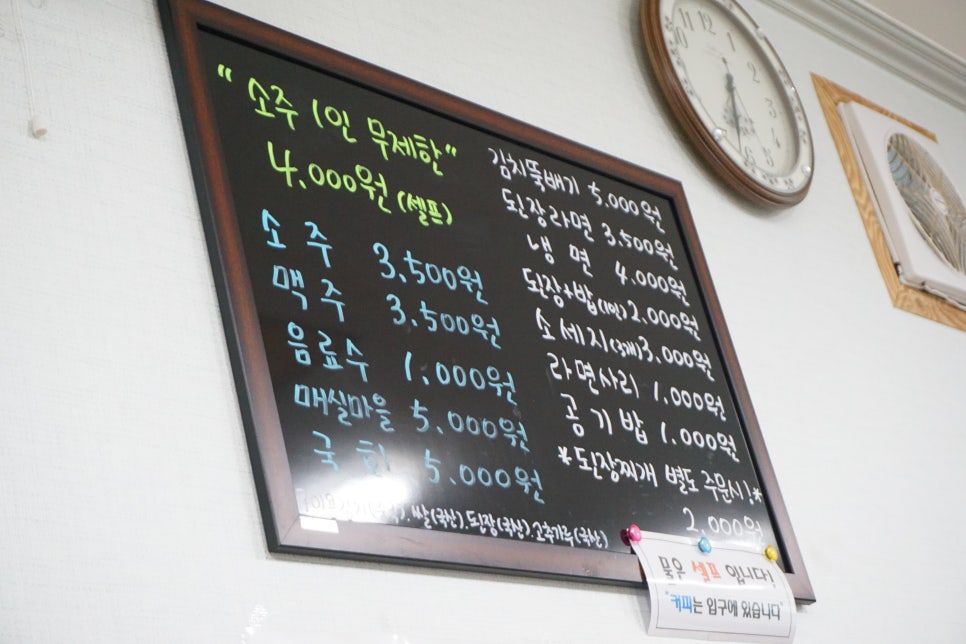 "소주 1인 무제한"
4.000원 (셀프)
소주 3.500원
맥주 3.500원
음료수 1.000원
매실마을 5.000원
국화 5.000원
김치뚝배기 5.000원
된장라면 3.500원
냉면 4.000원
된장+밥(1인) 2.000원
소세지(3개) 3.000원
라면사리 1.000원
공기밥 1.000원
*된장찌개 별도 주문시!*
2.000원
쌀(국산). 된장(국산). 고추가루(국산)
물은 셀프 입니다!
"커피는 입구에 있습니다"
12
1
2
3
4
5
6
10
11